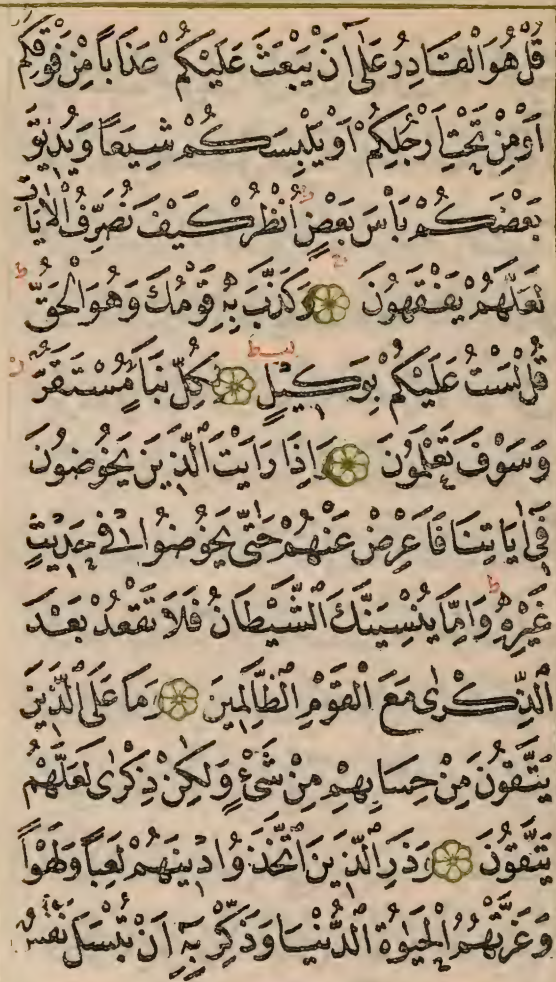 قُلْ هُوَ الْقَادِرُ عَلَىٰ أَنْ يَبْعَثَ عَلَيْكُمْ عَذَابًا مِنْ فَوْقِكُمْ
أَوْ مِنْ تَحْتِ أَرْجُلِكُمْ أَوْ يَلْبِسَكُمْ شِيَعًا وَيُذِيقَ
بَعْضَكُمْ بَأْسَ بَعْضٍ ط اُنْظُرْ كَيْفَ نُصَرِّفُ الْاٰيَاتِ
لَعَلَّهُمْ يَفْقَهُونَ وَكَذَّبَ بِهِ قَوْمُكَ وَهُوَ الْحَقُّ ط
قُلْ لَسْتُ عَلَيْكُمْ بِوَكِيلٍ لِكُلِّ نَبَأٍ مُسْتَقَرٌّ ز
وَسَوْفَ تَعْلَمُونَ وَاِذَا رَاَيْتَ الَّذِينَ يَخُوضُونَ
فِي اٰيَاتِنَا فَاَعْرِضْ عَنْهُمْ حَتّٰى يَخُوضُوا فِي حَدِيثٍ
غَيْرِهِ ط وَاِمَّا يُنْسِيَنَّكَ الشَّيْطَانُ فَلَا تَقْعُدْ بَعْدَ
الذِّكْرٰى مَعَ الْقَوْمِ الظَّالِمِينَ وَمَا عَلَى الَّذِينَ
يَتَّقُونَ مِنْ حِسَابِهِمْ مِنْ شَيْءٍ وَلٰكِنْ ذِكْرٰى لَعَلَّهُمْ
يَتَّقُونَ وَذَرِ الَّذِينَ اتَّخَذُوا دِينَهُمْ لَعِبًا وَلَهْوًا
وَغَرَّتْهُمُ الْحَيٰوةُ الدُّنْيَا وَذَكِّرْ بِهِ اَنْ تُبْسَلَ نَفْسٌ